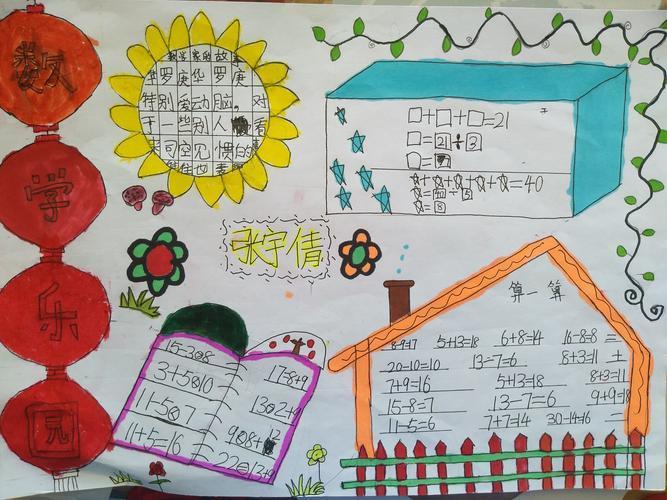 数
学
乐
园
数学家的故事
华罗庚华罗庚
特别爱动脑。对
于一些别人看
来司空见惯的
□+□+□=21
□=21÷3
□=
☆+☆+☆+☆+☆=40
☆=40÷5
☆=8
张宇倩
算一算
5+13=18 6+8=14 16-8=8
20-10=10 13-7=6 8+3=11
7+9=16 5+13=18 8+3=11
15-8=7 13-7=6 9+9=18
11-5=6 7+7=14 30-14=16
3+5○10
11-5○7
11+5=16
17=8+9
13○2+9
22○13+9